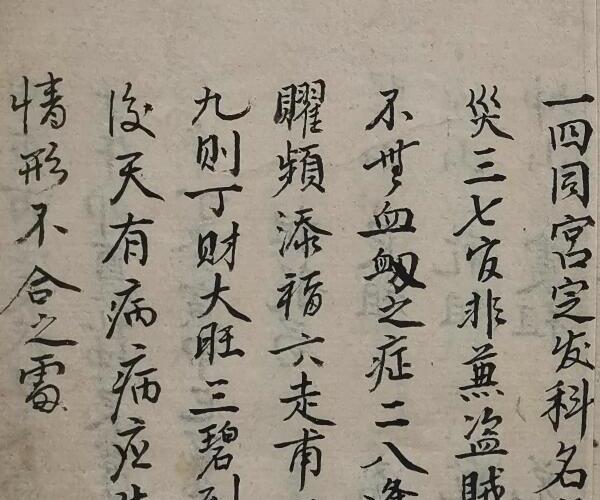 一四同宮定发科名
災三七官非兼盗賊
不無血衂之症二八逢
曜頻添福六走甫
九则丁财大旺三碧到
後天有病病症
情形不合之處